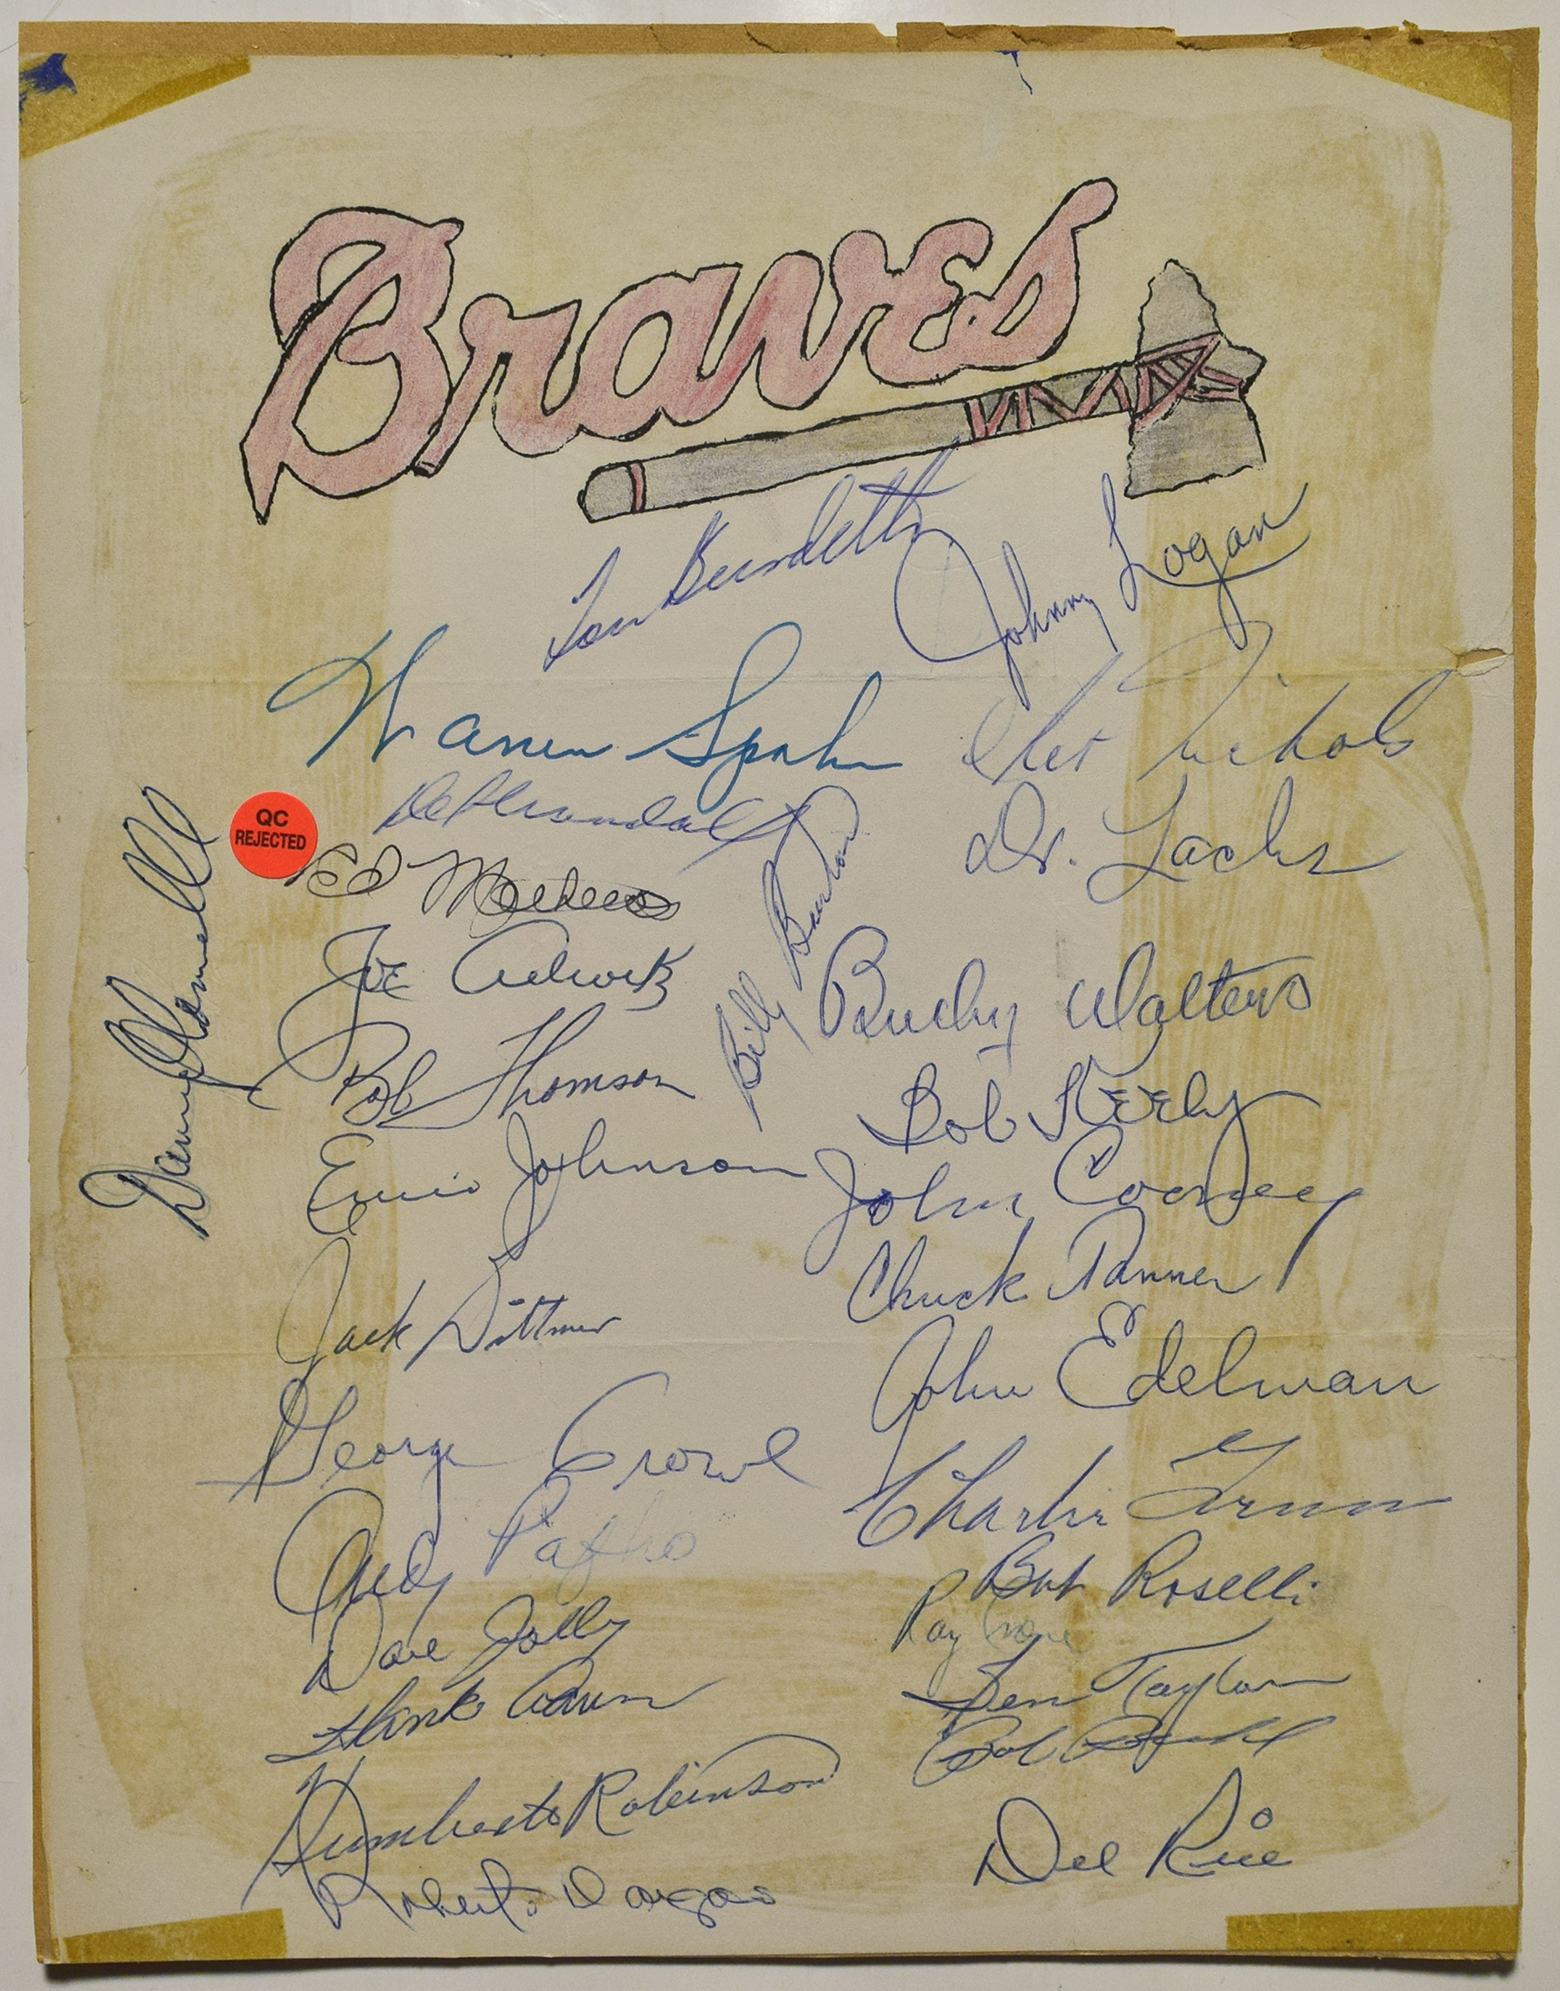 Braves
Lou Burdette
Johnny Logan
Warren Spahn
Chet Nichols
Del Crandall
Dr. Lacks
QC
REJECTED
Ed Mathews
Danny O'Connell
Billy Bruton
Joe Adcock
Bucky Walters
Bob Thomson
Bob Keely
Ernie Johnson
John Cooney
Chuck Tanner
Jack Dittmer
John Edelman
George Crowe
Charlie
Andy Pafko
Bob Roselli
Dave Jolly
Ray Crone
Hank Aaron
Ben Taylor
Bob Buhl
Humberto Robinson
Del Rice
Roberto Vargas